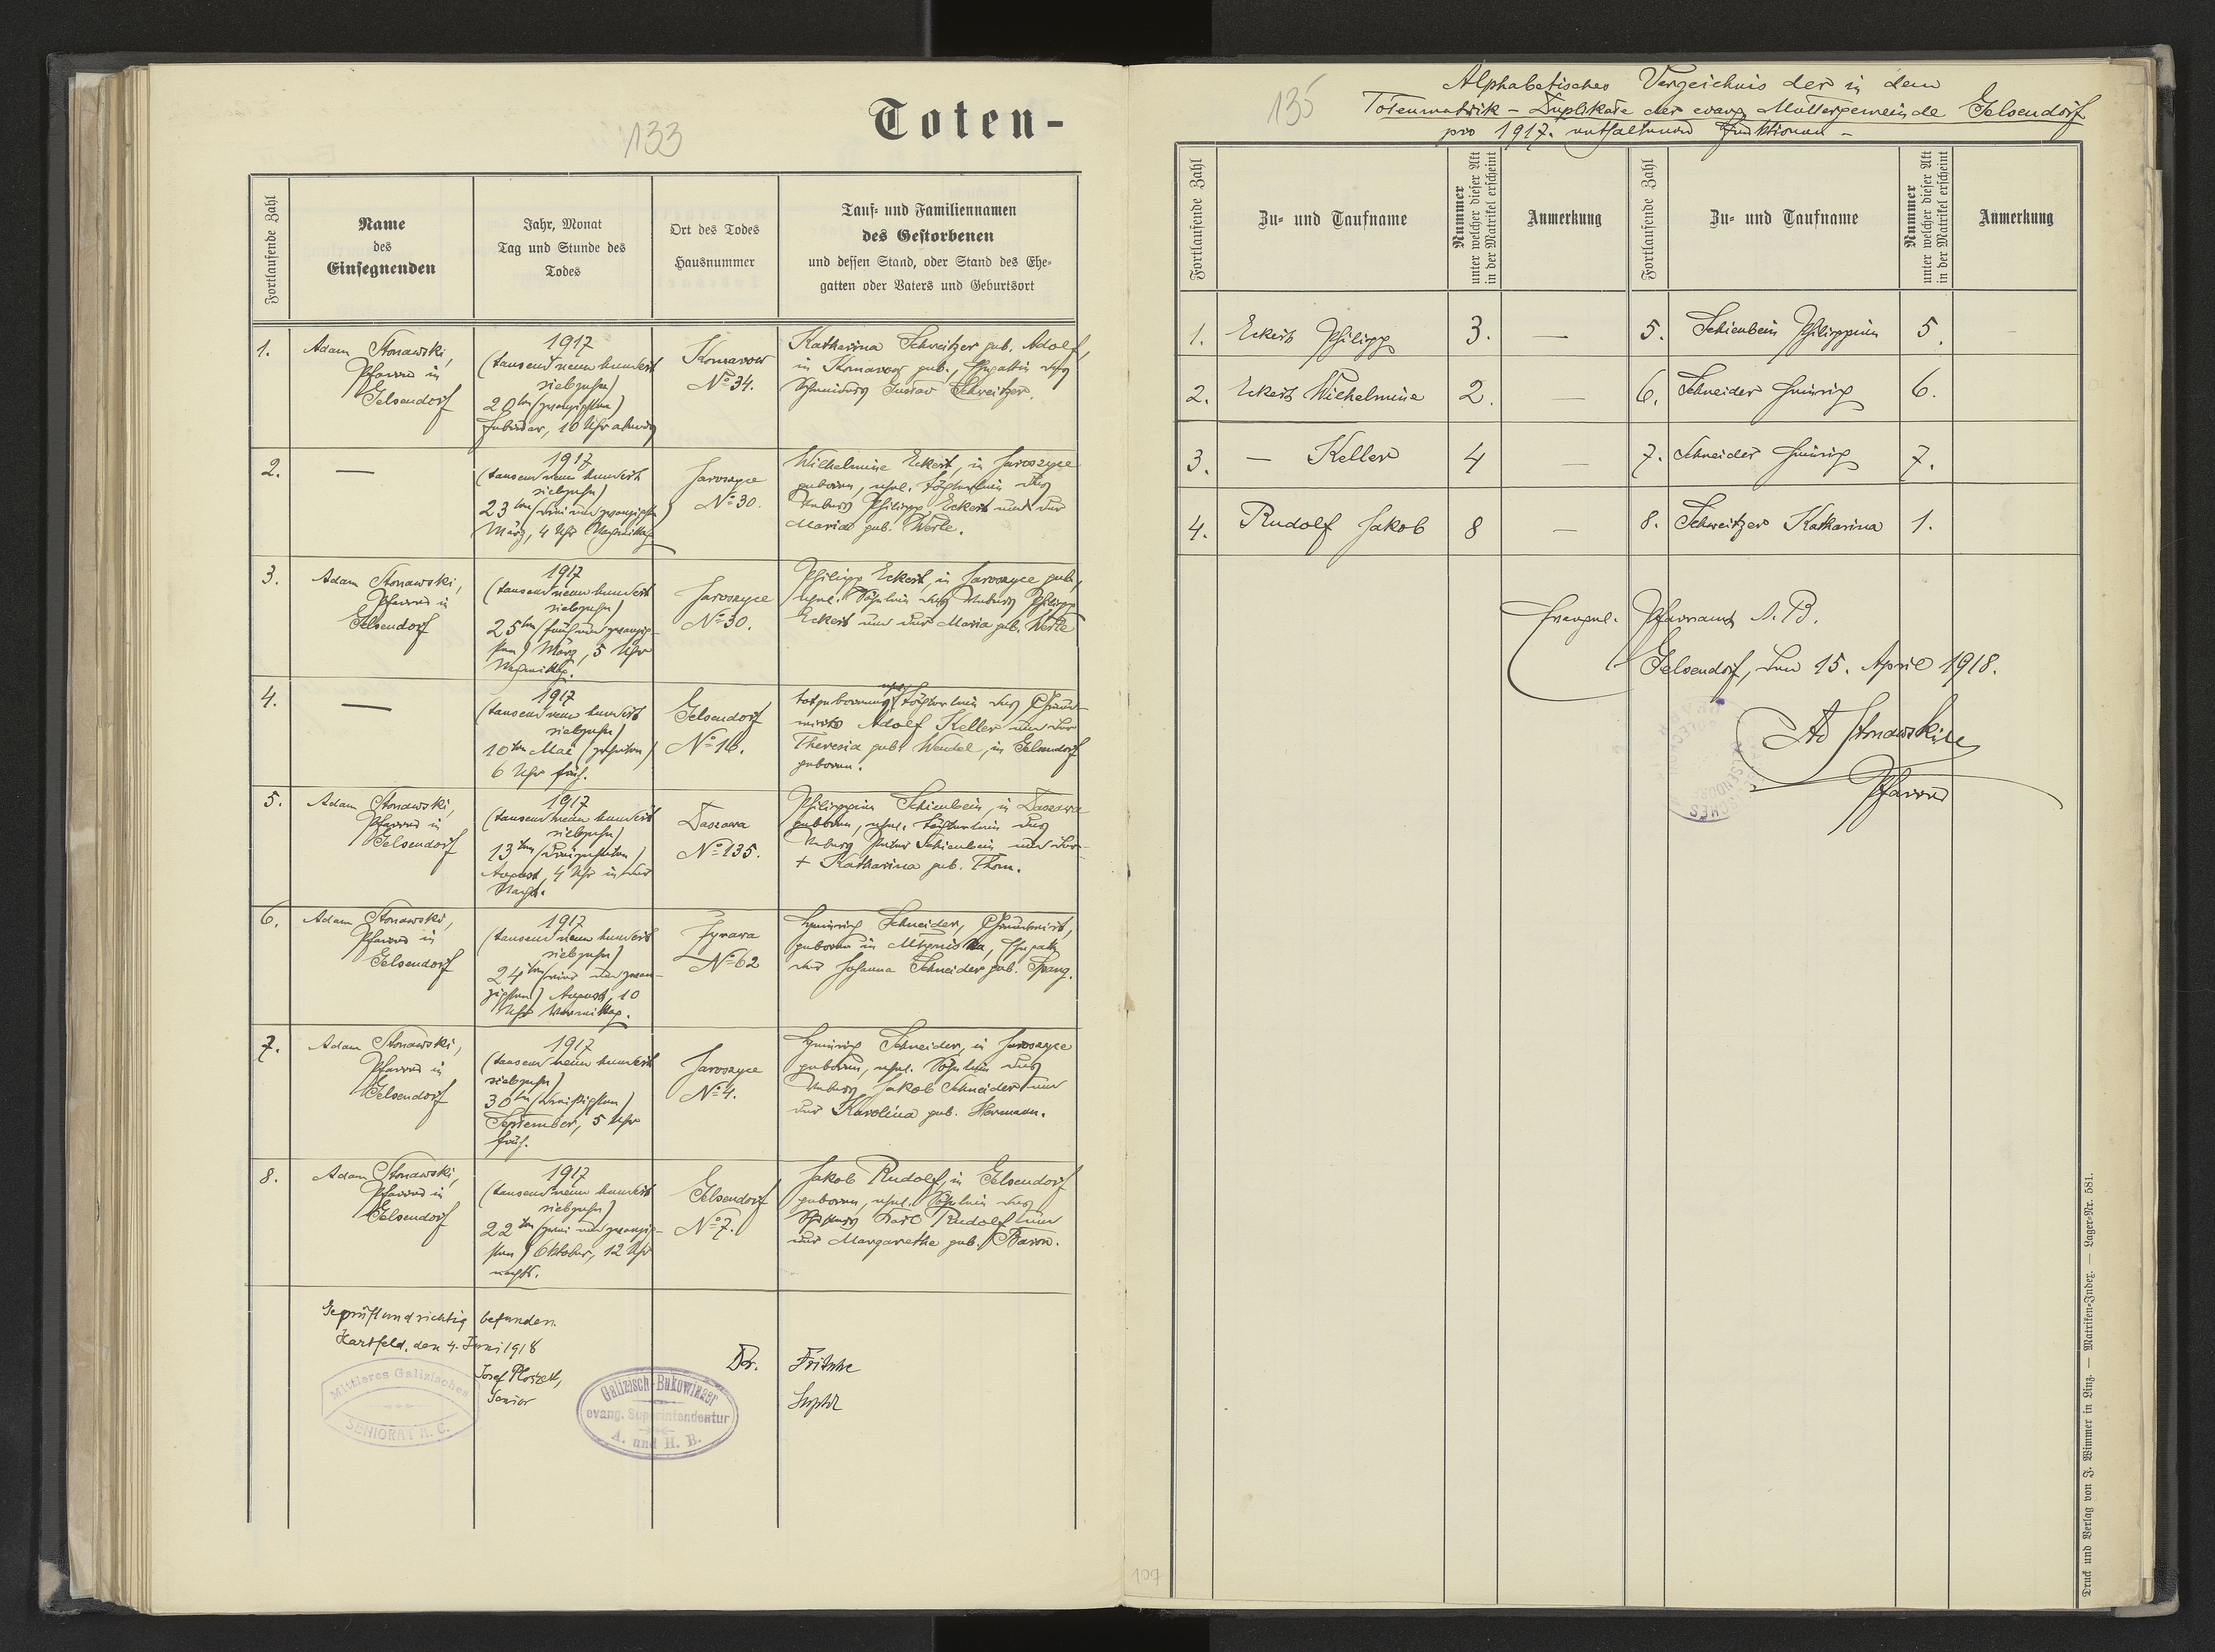 133
Toten-
Fortlaufende Zahl
Name
des
Einsegnenden
Jahr, Monat
Tag und Stunde des
Todes
Ort des Todes
Hausnummer
Tauf- und Familiennamen
des Gestorbenen
und dessen Stand, oder Stand des Ehe-
gatten oder Vaters und Geburtsort
1.
Adam Stonawski,
Pfarrer in
Gelsendorf
1917
(tausend neun hundert
siebzehn)
20ten (zwanzigsten)
Februar, 10 Uhr abends
Komarow
No 34.
Katharina Schweitzer geb. Adolf,
in Komarow geb., Ehegattin des
Schmiedes Gustav Schweitzer.
2.
—
1917
(tausend neun hundert
siebzehn)
23ten (drei und zwanzigsten)
März, 4 Uhr Nachmittag
Jaroszyce
No 30.
Wilhelmine Eckert, in Jaroszyce
geboren, ehel. Töchterlein des
Philipp Eckert und der
Maria geb. Werle.
3.
Adam Stonawski,
Pfarrer in
Gelsendorf
1917
(tausend neun hundert
siebzehn)
25ten (fünf und zwanzig-
sten) März, 5 Uhr
Nachmittag.
Jaroszyce
No 30.
Philipp Eckert, in Jaroszyce geb.,
ehel. Söhnlein des Philipp
Eckert und der Maria geb. Werle
4.
—
1917
(tausend neun hundert
siebzehn)
10ten Mai (zehnten)
6 Uhr früh.
Gelsendorf
No 16.
totgeborenes ehel. Töchterlein des Grund-
wirts Adolf Keller und der
Theresia geb. Wendel, in Gelsendorf
geboren.
5.
Adam Stonawski,
Pfarrer in
Gelsendorf
1917
(tausend neun hundert
siebzehn)
13ten (dreizehnten)
August, 4 Uhr in der
Nacht.
Daszawa
No 135.
Philippine Schienbein, in Daszawa
geboren, ehel. Töchterlein des
Peter Schienbein und der
+ Katharina geb. Thom.
6.
Adam Stonawski,
Pfarrer in
Gelsendorf
1917
(tausend neun hundert
siebzehn)
24ten (vier und zwan-
zigsten) August, 10
Uhr Vormittag.
Zyrawa
No 62
Heinrich Schneider, Grundwirt,
geboren in Ehegatte
der Johanna Schneider geb. Spang.
7.
Adam Stonawski,
Pfarrer in
Gelsendorf
1917
(tausend neun hundert
siebzehn)
30ten (dreißigsten)
September, 5 Uhr
früh.
Jaroszyce
No 4.
Heinrich Schneider, in Jaroszyce
geboren, ehel. Söhnlein des
Jakob Schneider und
der Karolina geb. Hermann.
8.
Adam Stonawski,
Pfarrer in
Gelsendorf
1917
(tausend neun hundert
siebzehn)
22ten (zwei und zwanzig-
sten) Oktober, 12 Uhr
nachts.
Gelsendorf
No 7.
Jakob Rudolf, in Gelsendorf
geboren, ehel. Söhnlein des
Karl Rudolf und
der Margarethe geb. Baron.
Geprüft und richtig befunden.
Hartfeld, den 4. Juni 1918
Josef
Senior
Mittleres Galizisches
SENIORAT A. C.
Galizisch-Bukowinaer
evang. Superintendentur
A. und H. B.
Dr. Fritsche
Suptdt
135
Alphabetisches Verzeichnis der in dem
Totenmatrik-Duplikate der evang. Muttergemeinde Gelsendorf
pro 1917. enthaltenen Funktionen -
Fortlaufende Zahl
Zu- und Taufname
Nummer
unter welcher dieser Akt
in der Matrikel erscheint
Anmerkung
Fortlaufende Zahl
Zu- und Taufname
Nummer
unter welcher dieser Akt
in der Matrikel erscheint
Anmerkung
1. Eckert Philipp 3. — 5. Schienbein Philippine 5. —
2. Eckert Wilhelmine 2. — 6. Schneider Heinrich 6.
3. — Keller 4 — 7. Schneider Heinrich 7.
4. Rudolf Jakob 8 — 8. Schweitzer Katharina 1.
Evangel. Pfarramt A. B.
Gelsendorf, den 15. April 1918.
Ad Stonawski
Pfarrer
107
Druck und Verlag von J. Wimmer in Linz. — Matriken-Index. — Lager-Nr. 581.